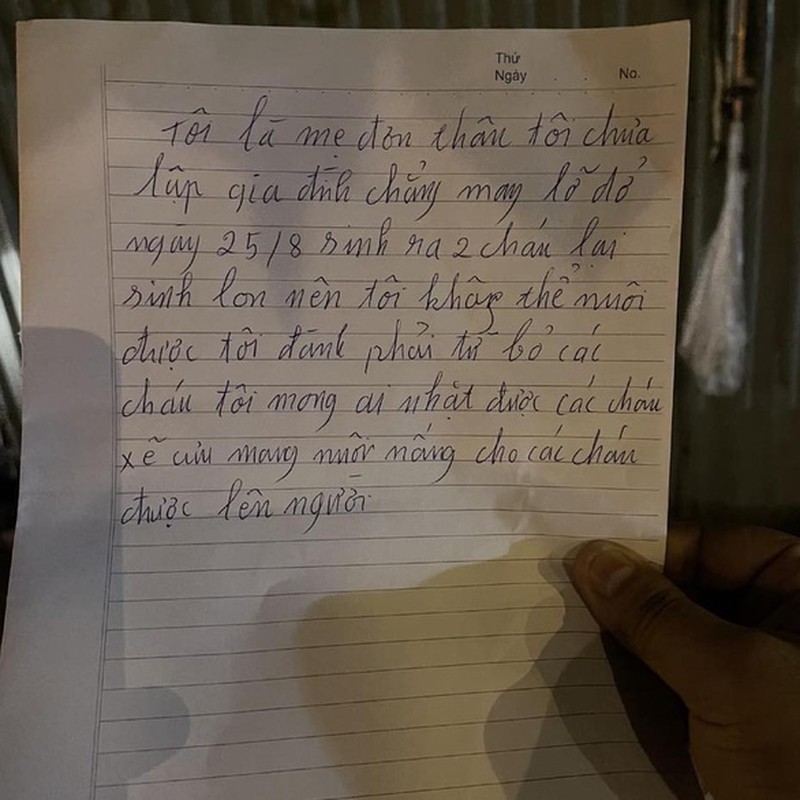 Thứ
Ngày . . No.
Tôi là mẹ đơn thân tôi chưa
lập gia đình chẳng may lỡ dở
ngày 25/8 sinh ra 2 cháu lại
sinh lon nên tôi không thể nuôi
được tôi đành phải từ bỏ các
cháu tôi mong ai nhặt được các cháu
xẽ cưu mang nuôi nấng cho các cháu
được lên người